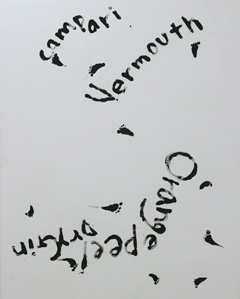 Campari
Vermouth
Orange peel
Dry Gin